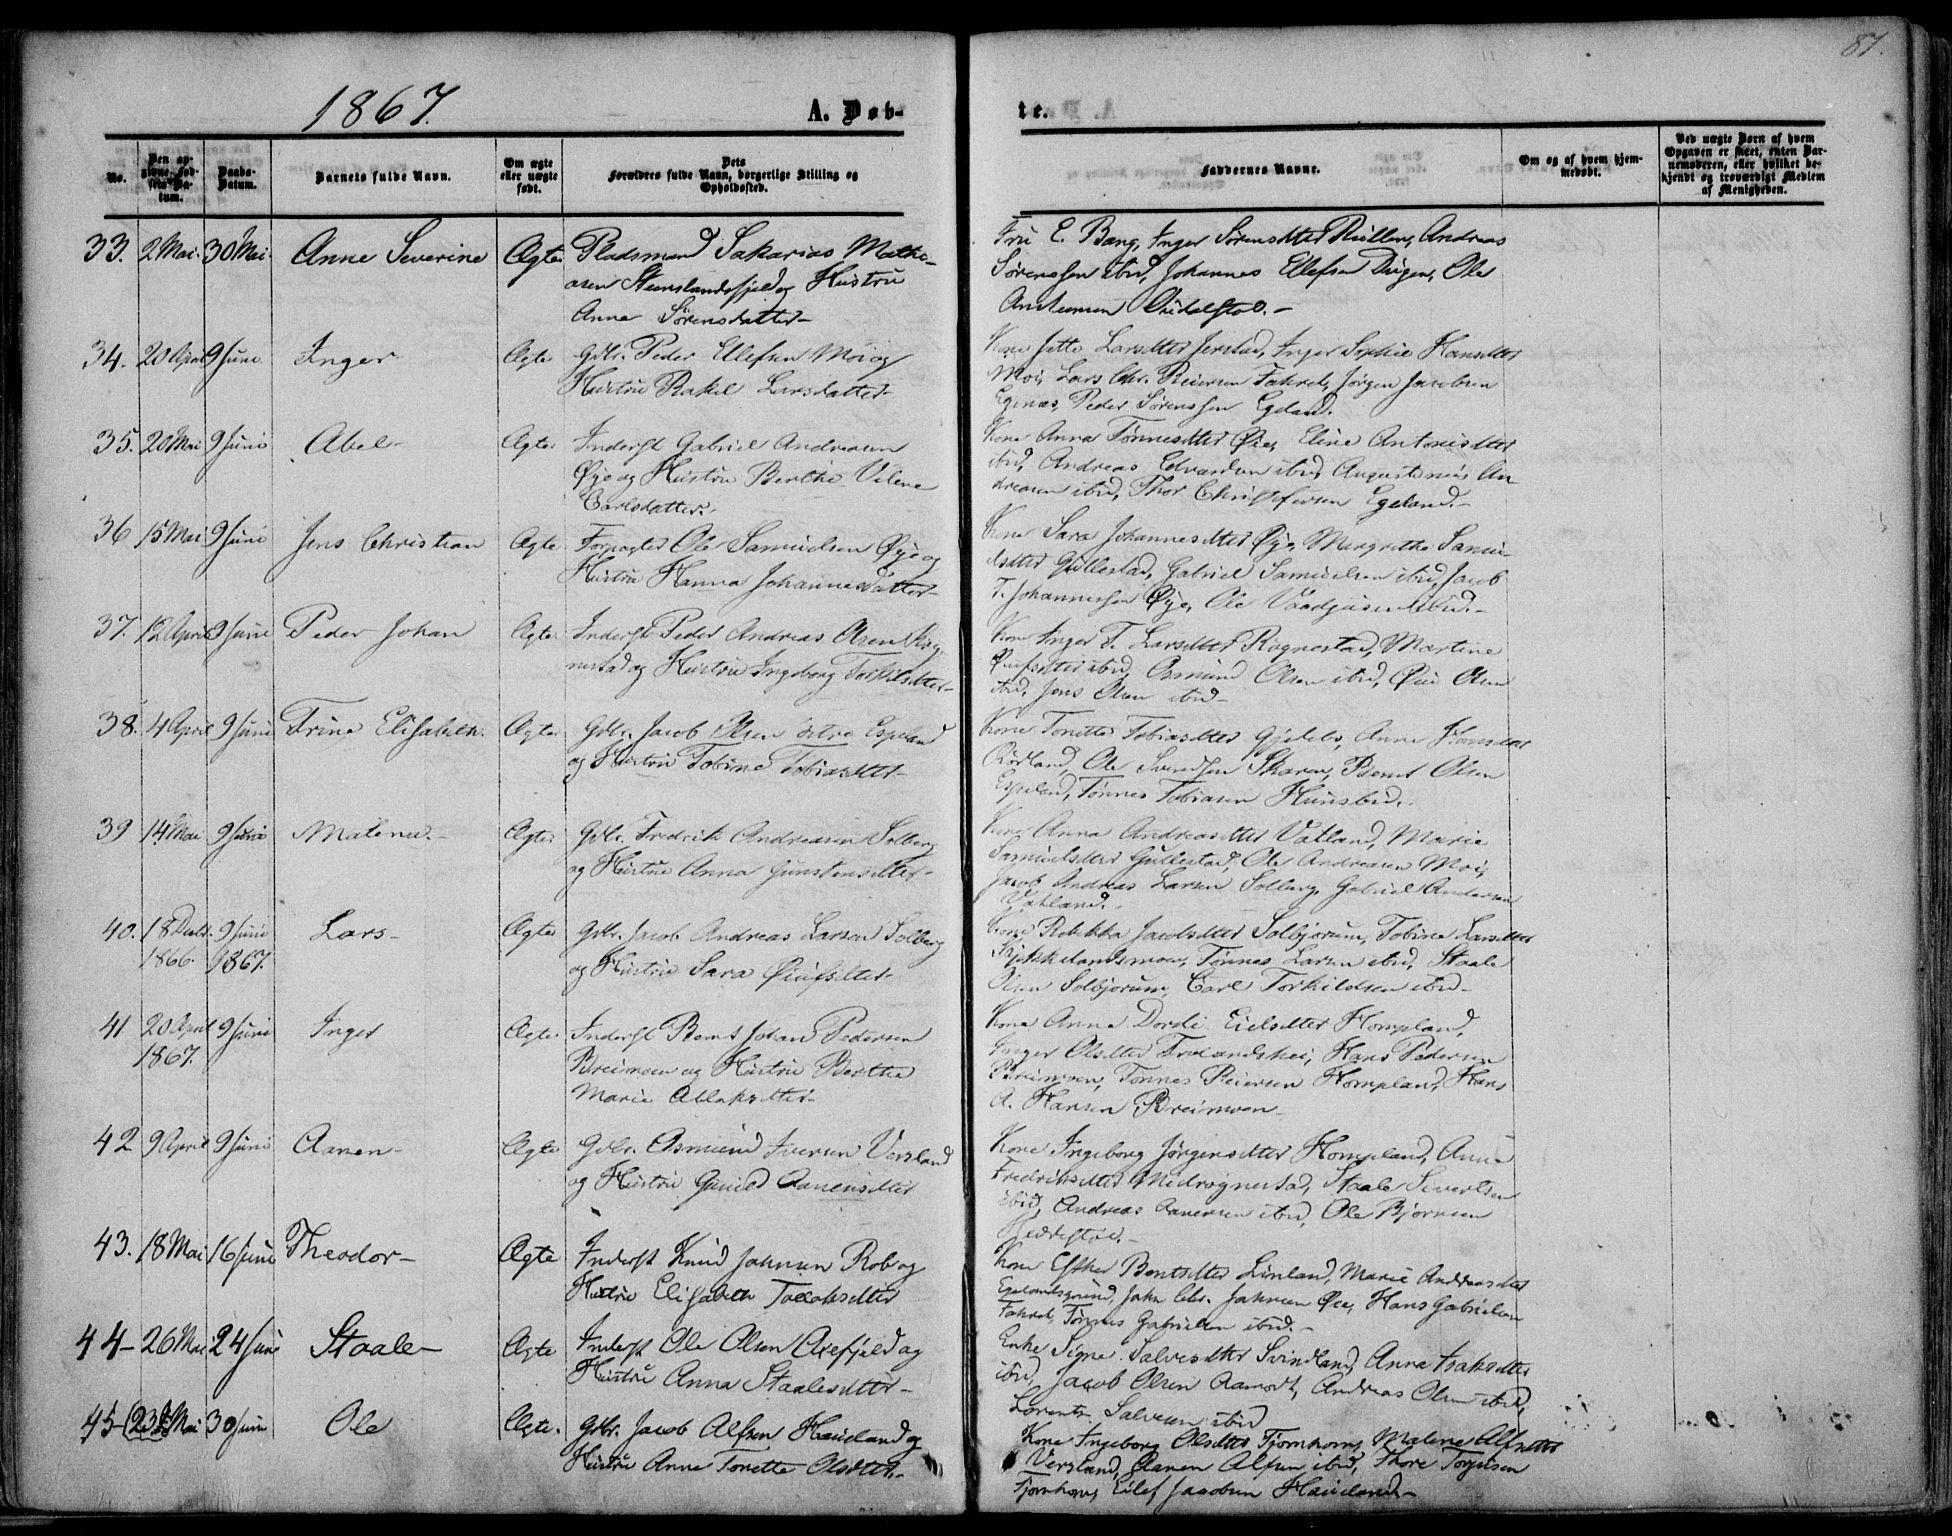 87.
1867.
A. Døb-
te.
No.
Den op-
givne Fød-
sels Da-
tum.
Daabs-
Datum.
Barnets fulde Navn.
Om ægte
eller uægte
født.
Dets
Forældres fulde Navn, borgerlige Stilling og
Opholdssted.
Faddernes Navne.
Om og af hvem hjem-
medøbt.
Ved uægte Børn af hvem
Opgaven er skeet, enten Bar-
nemoderen, eller hvilket be-
kjendt og troværdigt Medlem
af Menigheden.
33. 2 Mai. 30 Mai. Anne Severine Ægte Pladsmand Sakarias Mathe-
asen Steenslandsfjeld og Hustru
Anna Sørensdatter-
Fru E. Bang, Inger Sørensdtter, Andreas
Sørenssen ibid, Johannes Ellefsen, Ole
34. 20 April 9 Juni Inger Ægte Gdbr. Peder Ellefsen Moi og
Hustru Rakel Larsdatter-
Kone Jette Larsdtter Jerstad, Inger Sophie Hansdtter
Moi, Lars Chr. Reiersen Fahret, Jørgen Jacobsen
Egenæs, Peder Sørenssen Egeland.
35. 20 Mai 9 Juni Abel- Ægte. Inderst Gabriel Andreasen
Øye og Hustru Berthe Velene
Carlsdatter.
Kone Anna Tønnesdtter Øie, Eline Antonisdtter
ibid, Andreas Edvardsen ibid, Augustinius An
dreasen ibid, Thor Christofersen Egeland.-
36 15 Mai 9 Juni Jens Christian Ægte Forpagter Ole Samuelsen Øye og
Hustru Hanna Johannesdatter-
Kone Sara Johannesdtter Øye, Margrethe Samu-
elsdtter Gullestad, Gabriel Samuelsen ibid, Jacob
T. Johannessen Øye, Ole ibid.-
37. 12 April 9 Juni Peder Johan Ægte Inderst Peder Andreas Osen Rog-
nestad og Hustru Ingeborg Torkilsdtter-
Kone Inger T. Larsdtter Rognestad, Martine
ibid, Osmund Olsen ibid, Olsen
ibid, Jens Olsen ibid-
38. 4 April 9 Juni Trine Elisabeth. Ægte Gdbr. Jacob Olsen Espeland
og Hustru Tobine Tobiasdtter-
Kone Tonette Tobiasdtter, Anne Hansdtter
Rørland, Ole Svendsen Skaren, Bernt Olsen
Espeland, Tønnes Tobiasen Hunsbed.
39 14 Mai 9 Juni Malena.- Ægte Gdbr. Fredrik Andreasen Solberg
og Hustru Anna Gunstensdtter-
Kone Anna Andreasdtter Vatland, Marie
Samuelsdtter Gullestad, Ole Andreasen Moi,
Jacob Andreas Larsen Solberg, Gabriel Andersen
Vatland.
40. 18 Decbr. 9 Juni Lars- Ægte Gdbr. Jacob Andreas Larsen Solberg
1866. 1867. og Hustru Sara
Kone Rebekka Jacobsdtter Solbjorum, Tobine Larsdtter
Tønnes Larsen ibid, Staale
Olsen Solbjorum, Carl Torkildsen ibid-
41 20 April 9 Juni Inger Ægte Inderst Bernt Johan Pedersen
1867. Breimoen og Hustru Berthe
Marie Ollaksdtter-
Kone Anne Dordi Eielsdtter Hompland,
Inger Olsdtter, Hans Pedersen
Breimoen, Tønnes Reiersen Hompland, Hans
A. Hansen Breimoen-
42 9 April 9 Juni Aanen- Ægte Gdbr. Osmund Iversen Versland
og Hustru Gunild Aanensdtter
Kone Ingeborg Jørgensdtter Hompland, Anne
Fredriksdtter Midrognestad, Staale Sivertsen
ibid, Andreas Aanensen ibid, Ole Bjornsen
43. 18 Mai 16 Juni Theodor- Ægte Inderst Knud Jahnsen Rob og
Hustru Elisabeth Tollaksdtter
Kone Esther Berntsdtter Linland, Marie Andreasdtter
Egelandsgrund, Jahn Chr. Jahnsen Øie, Hans Gabrielsen
Fahret, Tønnes Gabrielsen ibid.-
44- 26 Mai 24 Juni Staale- Ægte Inderst Ole Olsen Oxefjeld og
Hustru Anna Staalesdtter-
Enke Signe Salvesdtter Svindland, Anna Isaksdtter
ibid, Jacob Olsen Aamodt, Andreas Olsen ibid,
Lorents Salvesen ibid
45- 23 Mai 30 Juni Ole Ægte. Gdbr. Jacob Alfsen Haueland og
Hustru Anne Tonette Olsdtter-
Kone Ingeborg Olsdtter Fjomhom, Malene Alfsdtter
Versland, Aanen Alfsen ibid, Thore Torgusen
Fjomhom, Eilef Jacobsen Haueland-